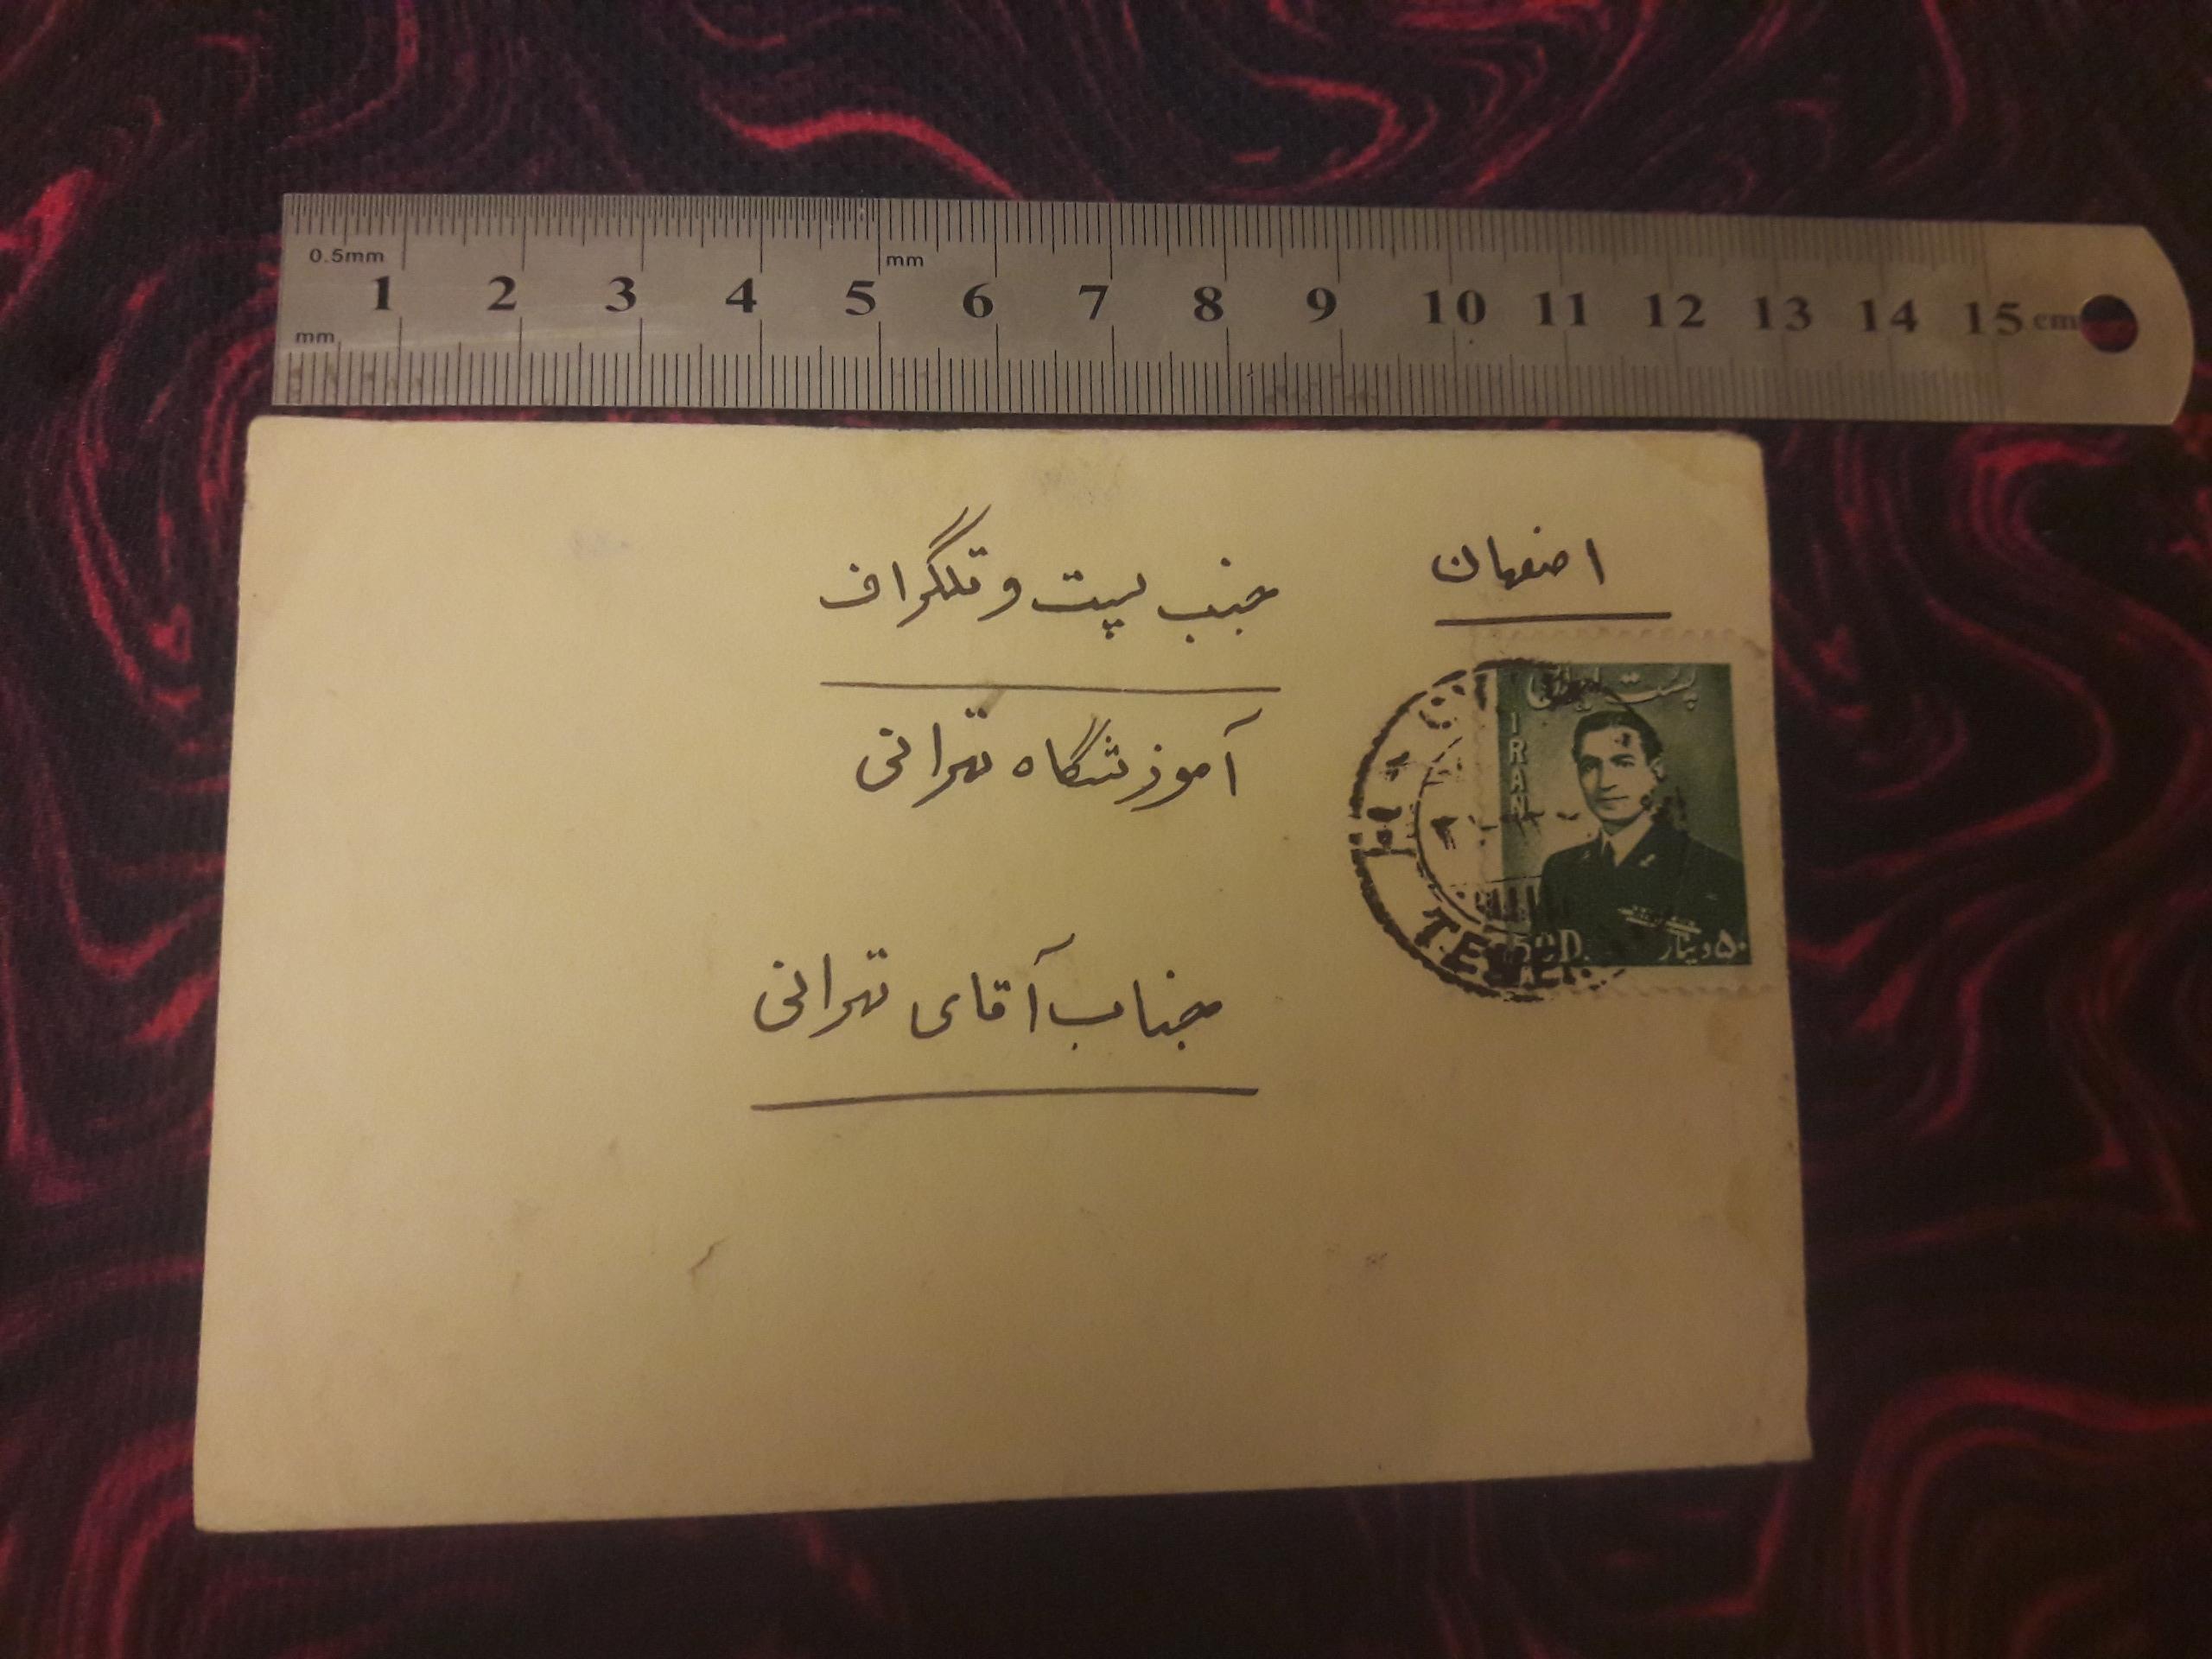 0.5mm
mm
1 2 3 4 5 6 7 8 9 10 11 12 13 14 15 cm
mm
اصفهان
جنب پست و تلگراف
آموزشگاه تهرانی
جناب آقای تهرانی
پست ایران
IRAN
50D.
۵۰ دینار